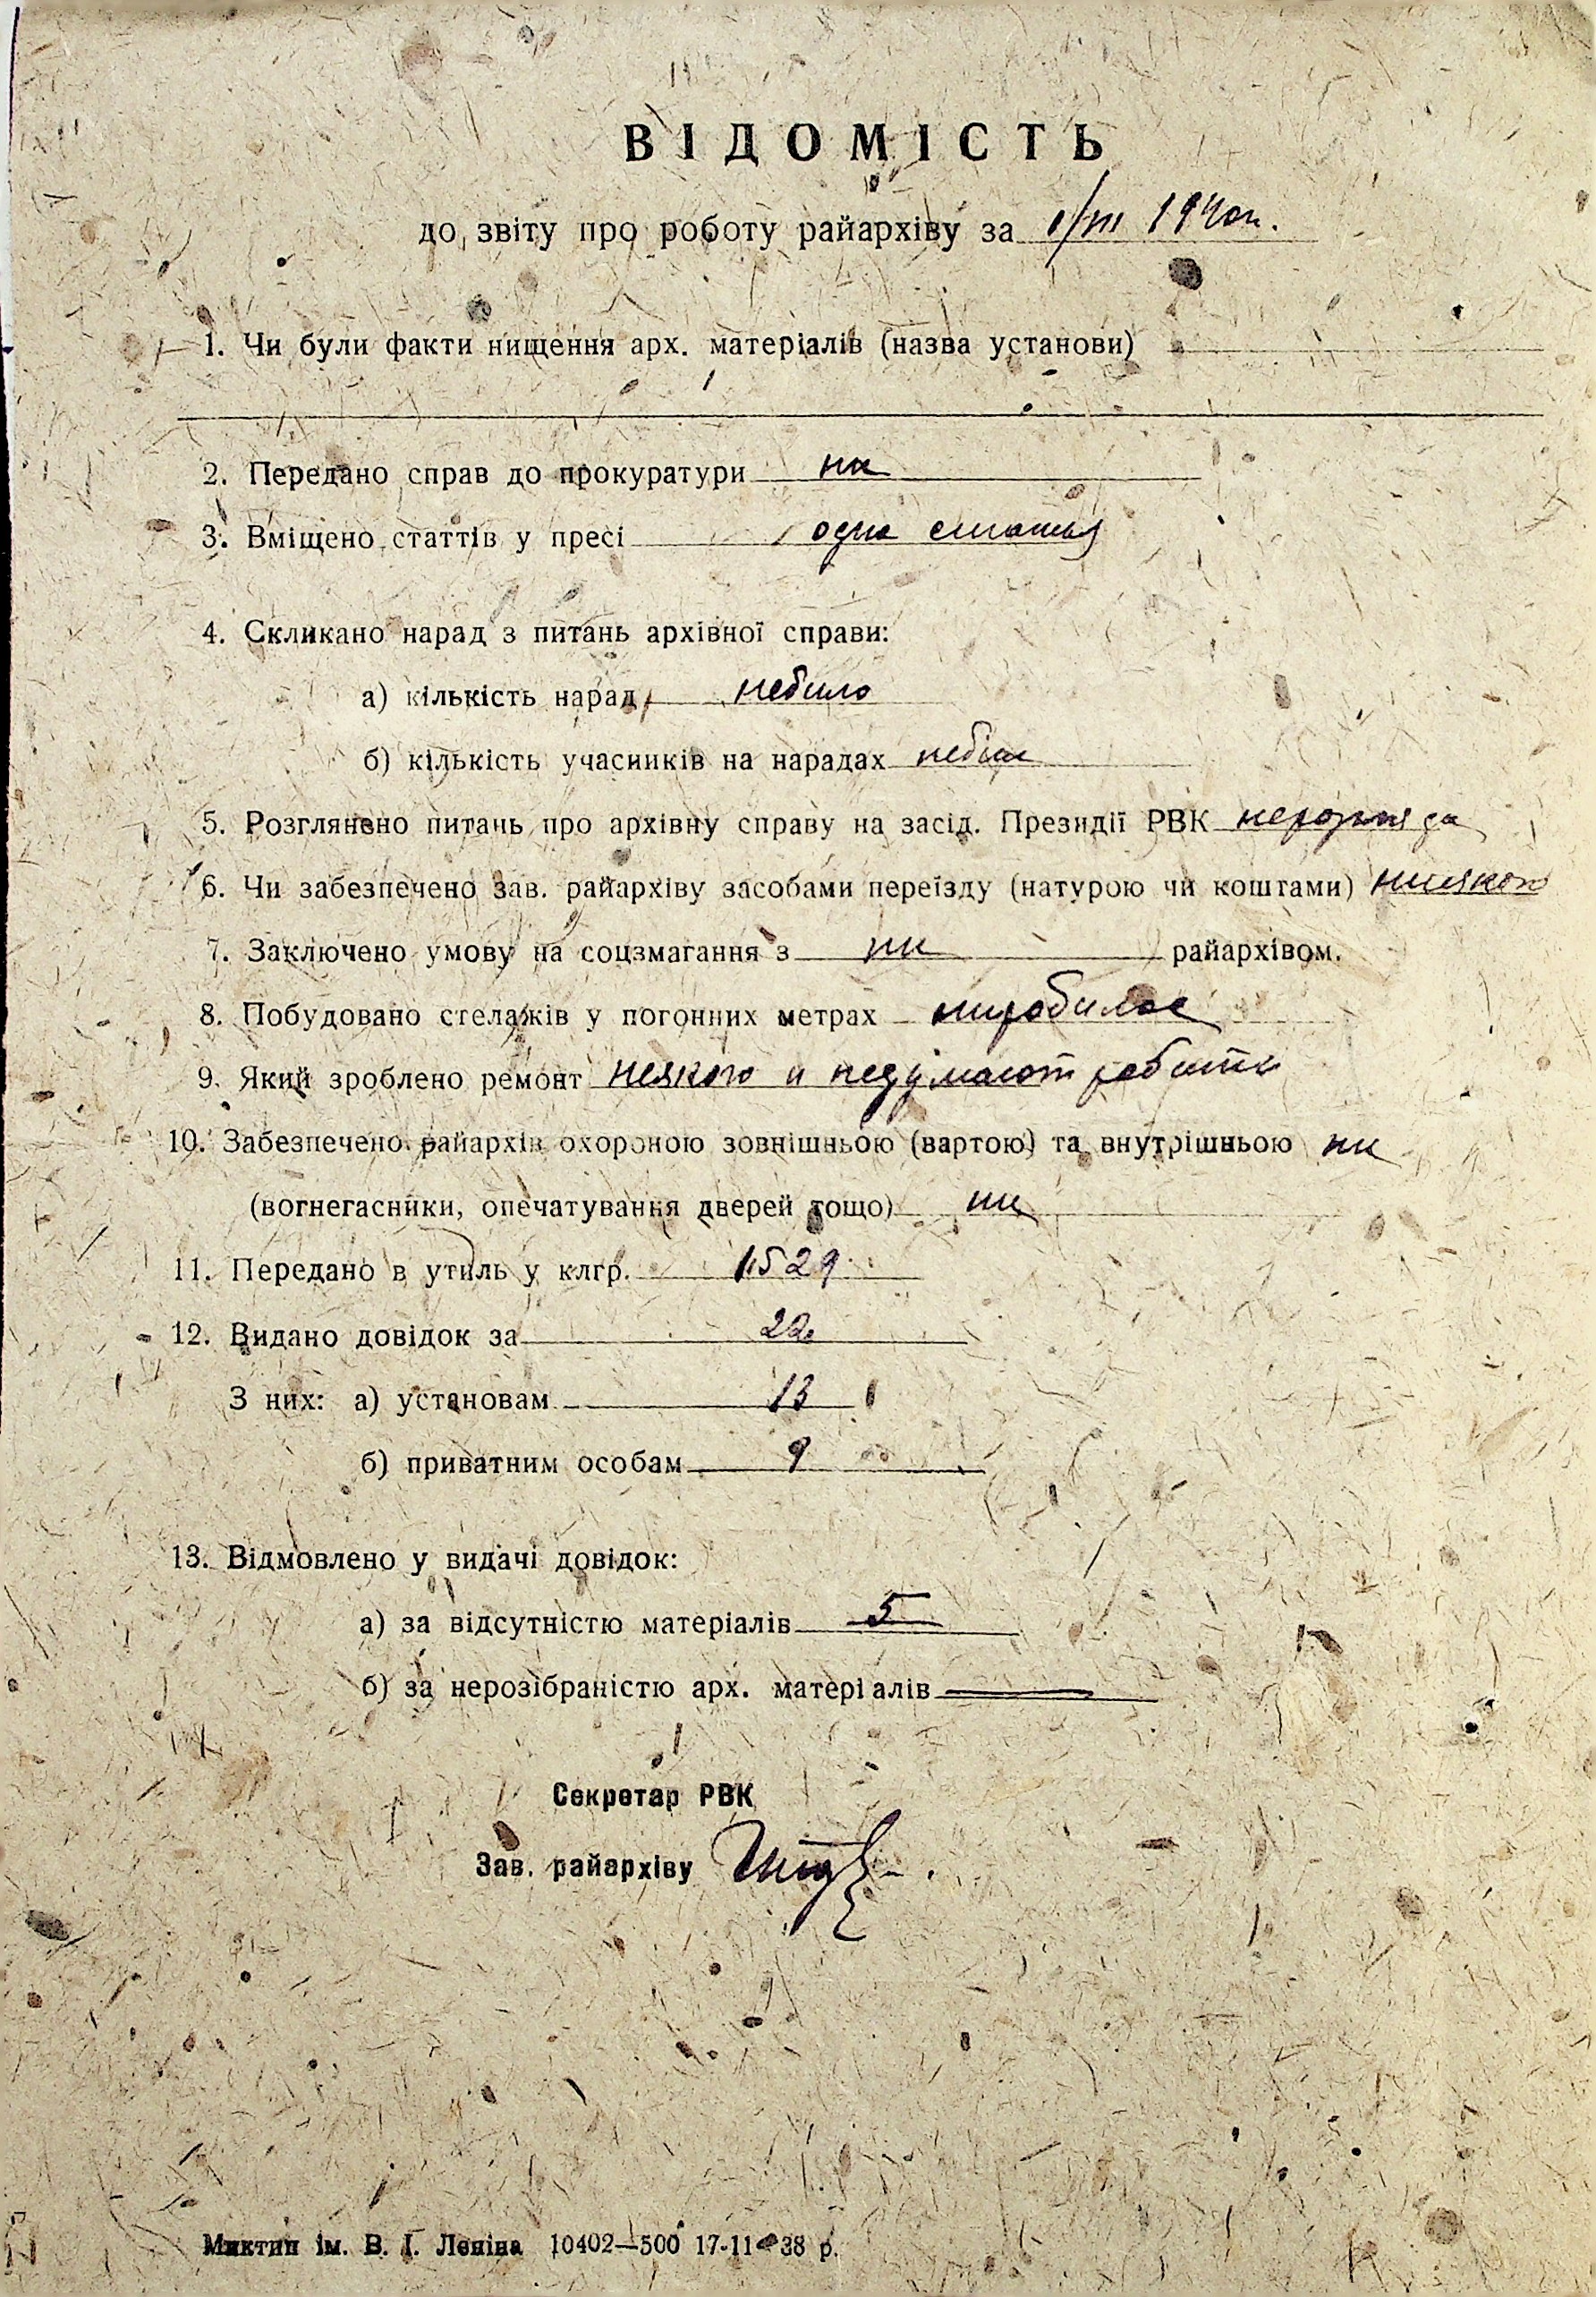 ВІДОМІСТЬ
до звіту про роботу райархіву за 1/III 1940 г.
1. Чи були факти нищення арх. матеріалів (назва установи)
2. Передано справ до прокуратури ни
3. Вміщено статтів у пресі одна статья
4. Скликано нарад з питань архівної справи:
а) кількість нарад небило
б) кількість учасників на нарадах
5. Розглянено питань про архівну справу на засід. Президії РВК
6. Чи забезпечено зав. райархіву засобами переїзду (натурою чи коштами)
7. Заключено умову на соцзмагання з ни райархівом.
8. Побудовано стелажів у погонних метрах
9. Який зроблено ремонт неякого и недумают робити
10. Забезпечено райархів охороною зовнішньою (вартою) та внутрішньою ни
(вогнегасники, опечатування дверей тощо) ни
11. Передано в утиль у клгр. 1529
12. Видано довідок за 22
З них: а) установам 13
б) приватним особам 9
13. Відмовлено у видачі довідок:
а) за відсутністю матеріалів 5
б) за нерозібраністю арх. матеріалів —
Секретар РВК
Зав. райархіву
Миктип ім. В. І. Леніна 10402—500 17-11-38 р.